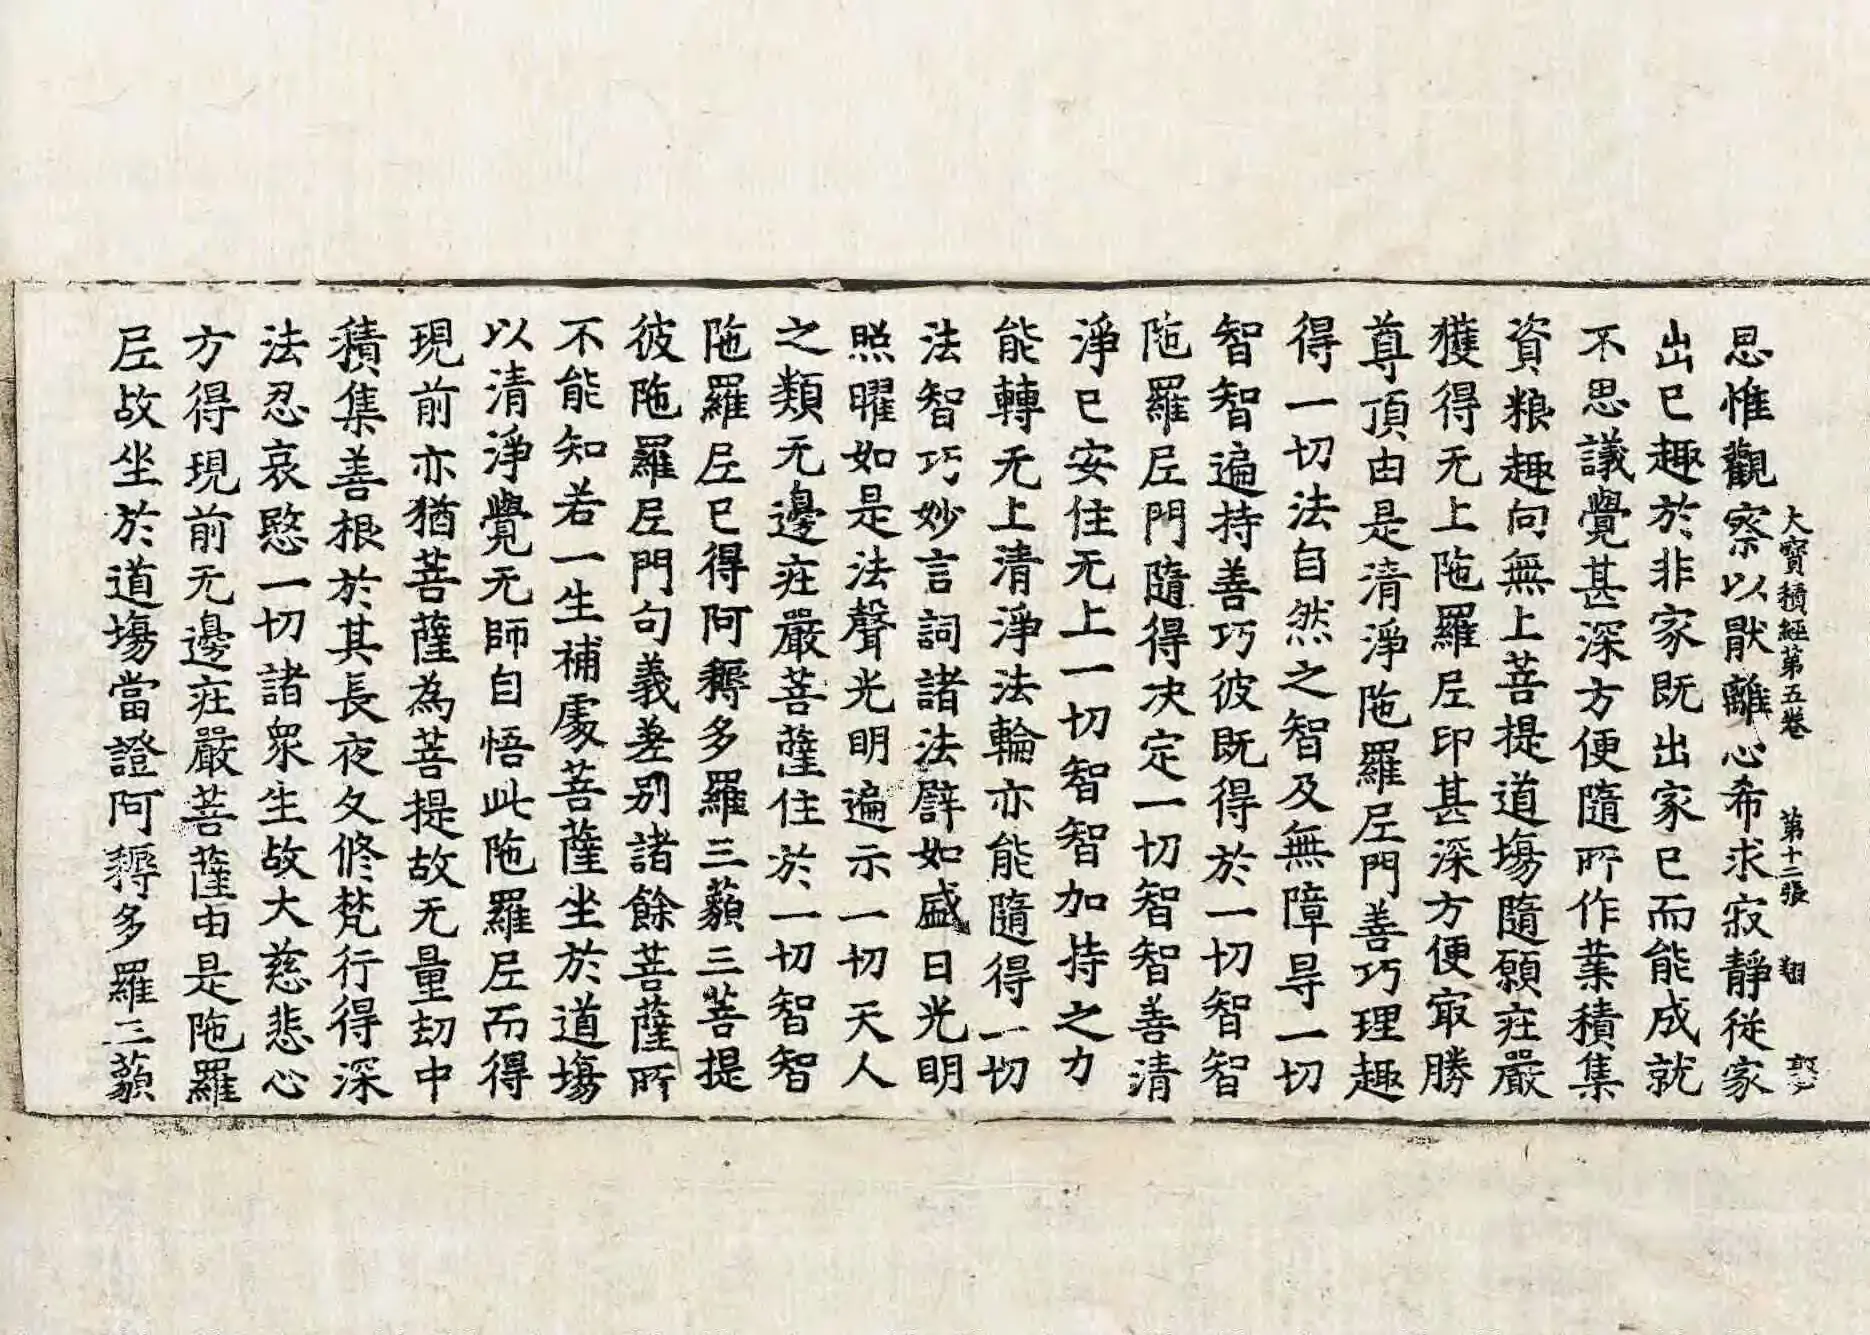 大寶積經第五卷 第十二張 翔
思惟觀察以猒離心希求寂靜從家
出已趣於非家既出家已而能成就
不思議覺甚深方便隨所作業積集
資粮趣向無上菩提道場隨願莊嚴
獲得无上陁羅尼印甚深方便㝡勝
尊頂由是清淨陁羅尼門善巧理趣
得一切法自然之智及無障㝵一切
智智遍持善巧彼既得於一切智智
陁羅尼門隨得决定一切智智善清
淨已安住无上一切智智加持之力
能轉无上清淨法輪亦能隨得一切
法智巧妙言詞諸法譬如盛日光明
照曜如是法聲光明遍示一切天人
之類无邊莊嚴菩薩住於一切智智
陁羅尼已得阿耨多羅三藐三菩提
彼陁羅尼門句義差別諸餘菩薩所
不能知若一生補處菩薩坐於道場
以清淨覺无師自悟此陁羅尼而得
現前亦猶菩薩為菩提故无量劫中
積集善根於其長夜久修梵行得深
法忍哀愍一切諸眾生故大慈悲心
方得現前无邊莊嚴菩薩由是陁羅
尼故坐於道場當證阿耨多羅三藐